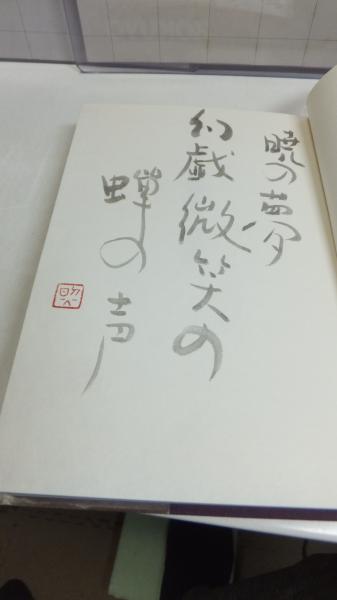 暁の夢
幻戯微笑の
蝉の声